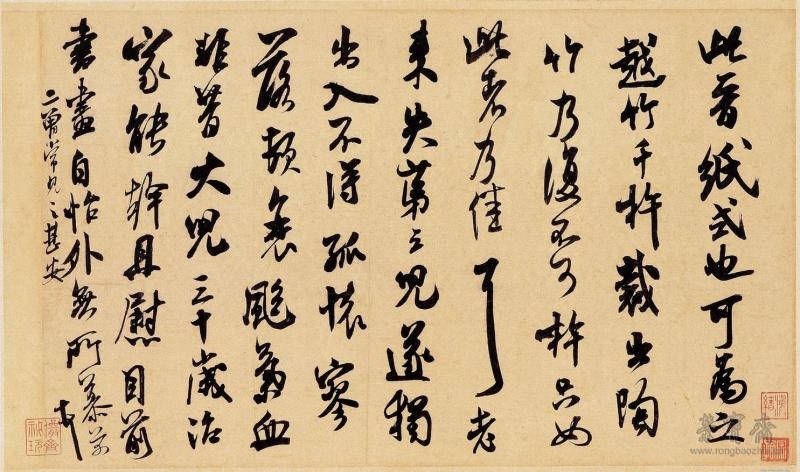 此晉紙式也可為之
越竹千杵裁出陶
竹乃復不可杵只如
此者乃佳耳老
來失第三兒遂獨
出入不得孤懷寥
落頓衰颼氣血
非昔大兒三十歲治
家能幹且慰目前
書畫自怡外無所慕芾
二曾常見之甚安
榮寶齋
www.rongbaozhai.cn